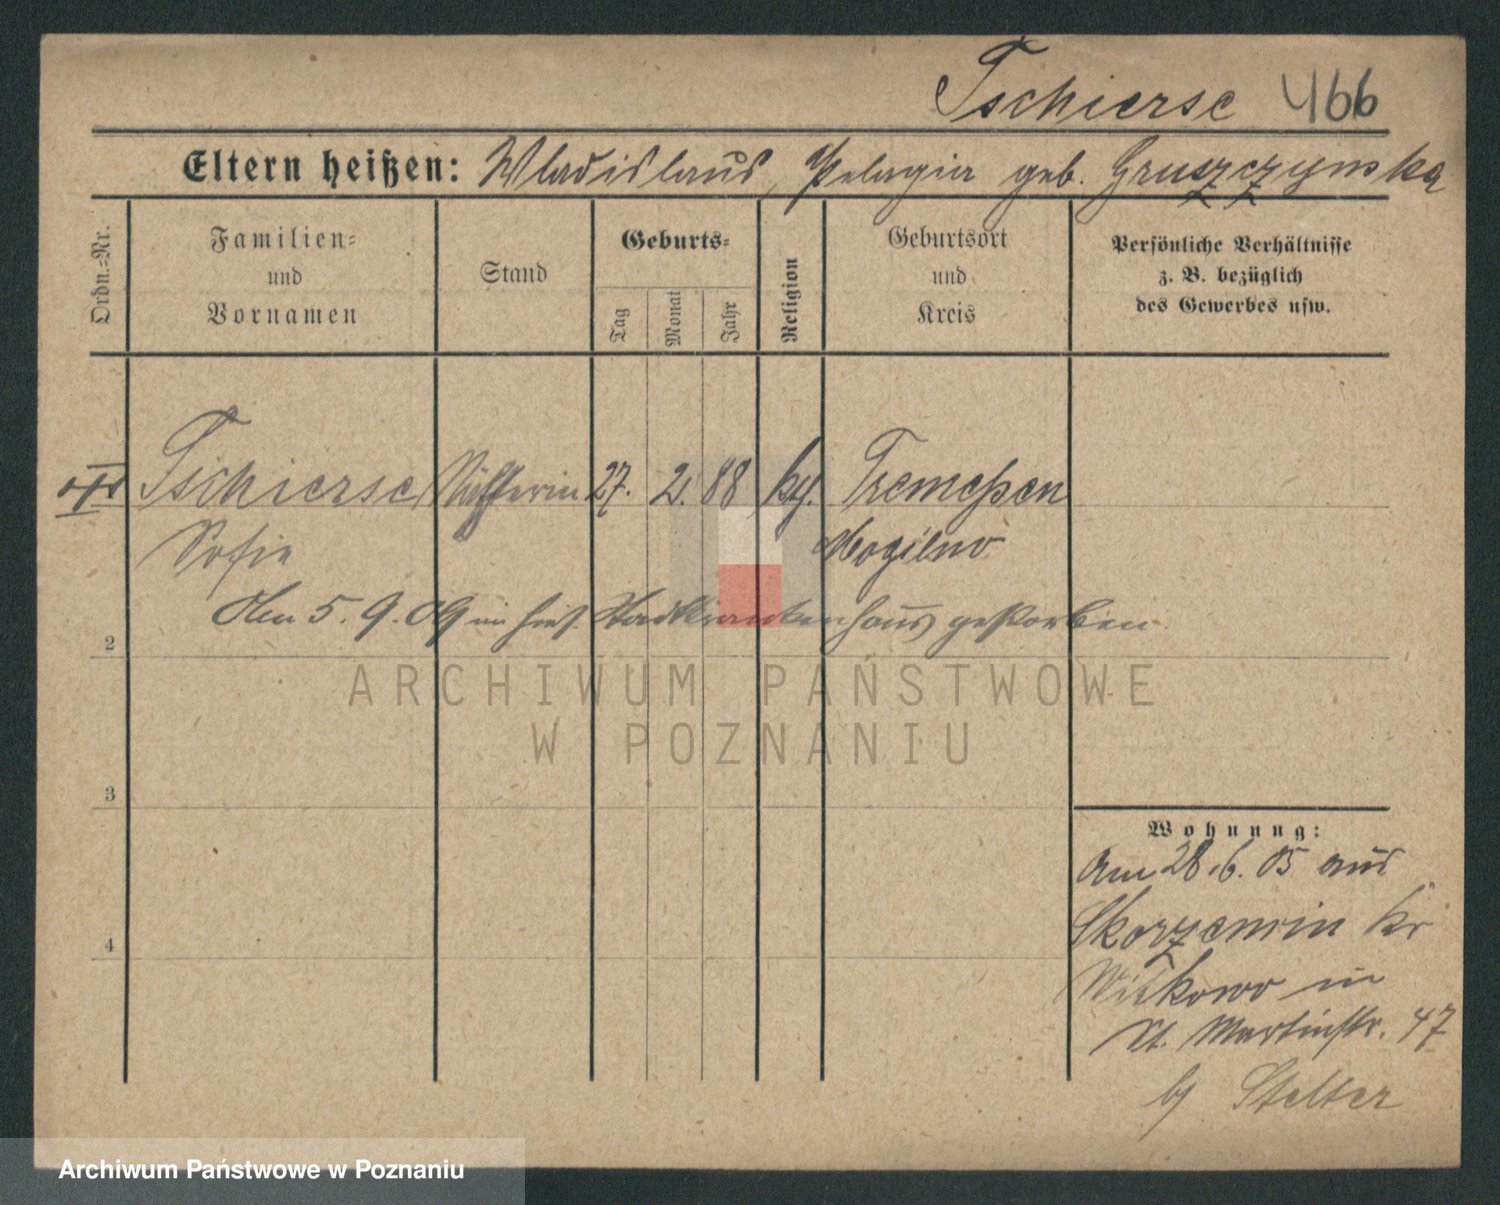 Tschierse 466
Eltern heißen: Wladislaus, Pelagia geb. Gruszczynska
Ordn.-Nr.
Familien- und Vornamen
Stand
Geburts-
Tag Monat Jahr
Religion
Geburtsort und Kreis
Persönliche Verhältnisse
z. B. bezüglich
des Gewerbes usw.
Tschierse 27. 2. 88 Tremeßen
Sofie Mogilno
Den 5. 9. 09 im hies. Stadtkrankenhaus gestorben
2
3
4
Wohnung:
Am 28.6.05 aus
Skorzencin Kr
Witkowo in
St. Martinstr. 47
bj Stelter
ARCHIWUM PAŃSTWOWE
W POZNANIU
Archiwum Państwowe w Poznaniu